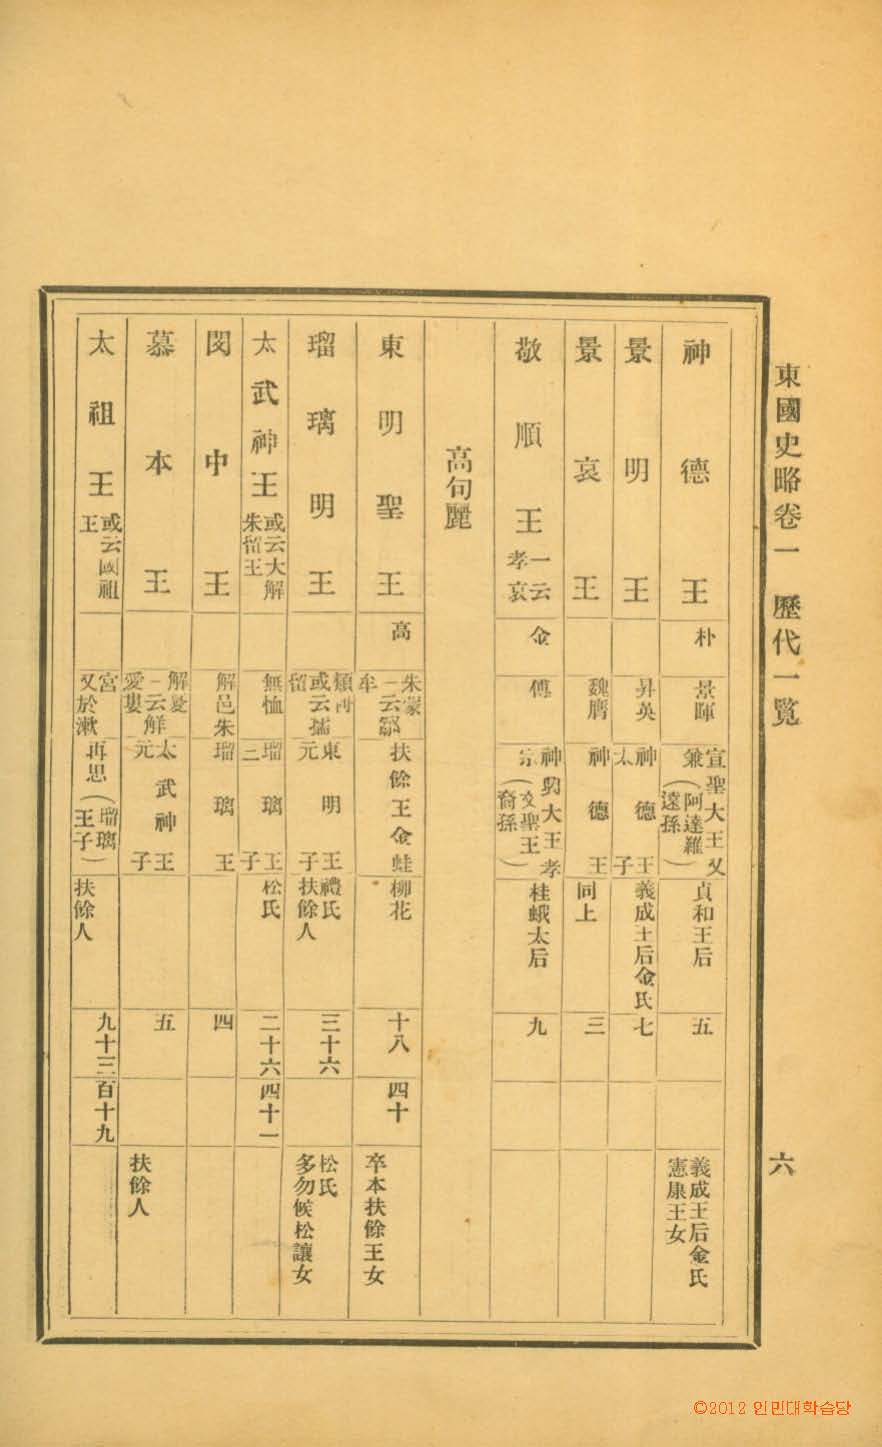 東國史略卷一 歷代一覽
六
神德王 朴 景暉 宣聖大王父兼(阿達羅遠孫) 貞和王后 五 義成王后金氏憲康王女
景明王 昇英 神德王太子 義成王后金氏 七
景哀王 魏膺 神德王 同上 三
敬順王 一云孝哀 金 傅 神興大王孝宗(文聖王裔孫) 桂蛾太后 九
高句麗
東明聖王 高 朱蒙一云鄒牟 扶餘王金蛙 柳花 十八 四十 卒本扶餘王女
瑠璃明王 類利或云孺留 東明王元子 禮氏扶餘人 三十六 松氏多勿候松讓女
太武神王 或云大解朱留王 無恤 瑠璃王三子 松氏 二十六 四十一
閔中王 解邑朱 瑠璃王 四
慕本王 解憂一云解愛婁 太武神王元子 五 扶餘人
太祖王 或云國祖王 宮又於漱 再思(瑠璃王子) 扶餘人 九十三 百十九
©2012 인민대학습당